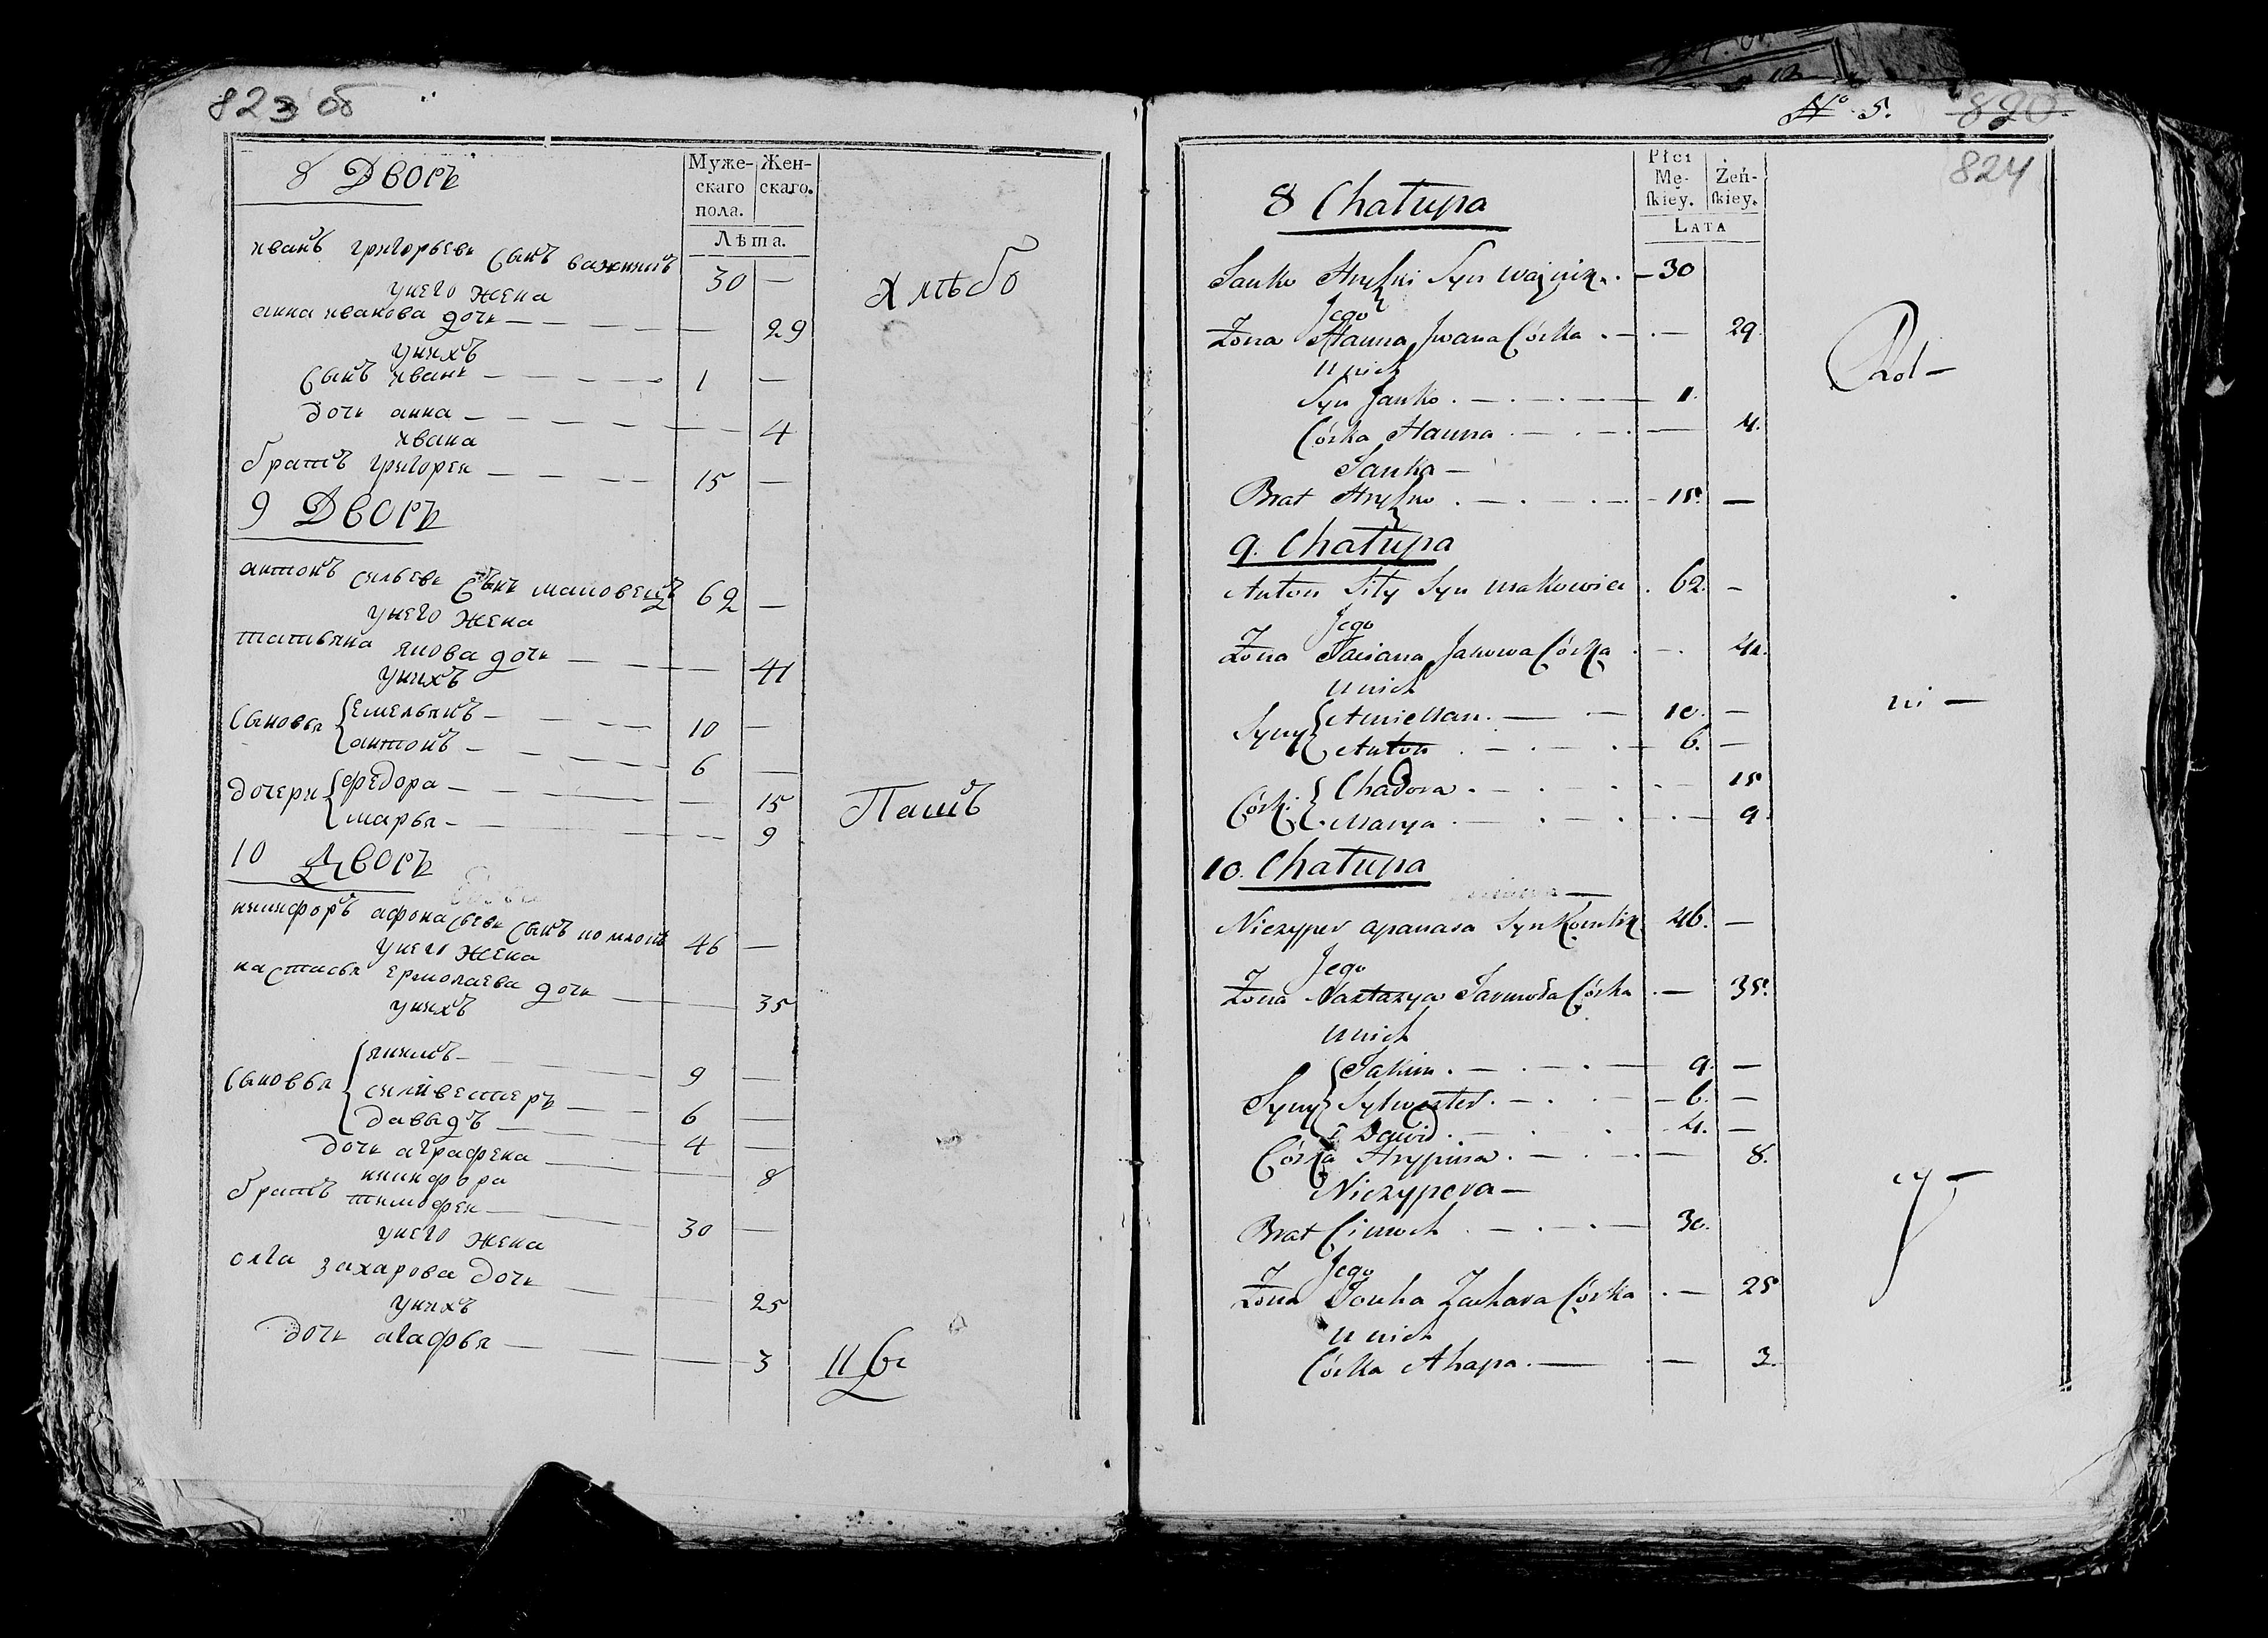 823 об
8 Дворъ
Муже-
скаго
пола.
Жен-
скаго.
Лѣта.
иванъ григорьевъ сынъ важникъ 30 —
у него жена
анна иванова дочь — 29
у нихъ
сынъ иванъ — 1 —
дочь анна — 4
ивана
братъ григорей — 15 —
9 Дворъ
антонъ сильевъ сынъ маковецъ 62 —
у него жена
татьяна якова дочь — 41
у нихъ
сыновья емельянъ — 10 —
антонъ — 6 —
дочери федора — 15
марья — 9
10 Дворъ
никифоръ афонасьевъ сынъ 46 —
у него жена
настасья ермолаева дочь — 35
у нихъ
сыновья якимъ — 9 —
сильвестеръ — 6 —
давыдъ — 4 —
дочь аграфена — 8
никифора
братъ тимофей — 30 —
у него жена
олга захарова дочь — 25
у нихъ
дочь агафья — 3
Хлѣбо
Пашъ
№ 5.
820
824
8 Chałupa
Płci
Mę-
ſkiey.
Żeń-
ſkiey.
LATA
Janko Hryſzki Syn 30
Jego
Żona Hanna Jwana Córka . — . — 29.
U nich
Syn Janko . — 1.
Córka Hanna . — 4.
Janka —
Brat Hryſzko . — 15. —
9. Chałupa
Anton Syn Makowiec . 62. —
Jego
Żona Taciana Jakowa Córka . — . 41.
U nich
Syny Amiellan . — 10. —
Anton . — 6. —
Córki Chadora . — 15
Marya . — 9.
10. Chałupa
Niczyper Apanasa Syn 46. —
Jego
Żona Nastazya Jarmoła Córka . — 35.
U nich
Syny Jakim . — 9. —
Sylwester . — 6. —
Dawid . — 4. —
Córka Hrypina . — 8.
Niczypera —
Brat Cimoch . — 30.
Jego
Żona Zachara Córka . — 25
U nich
Córka Ahapa . — 3.
Rol —
ni —
cy —